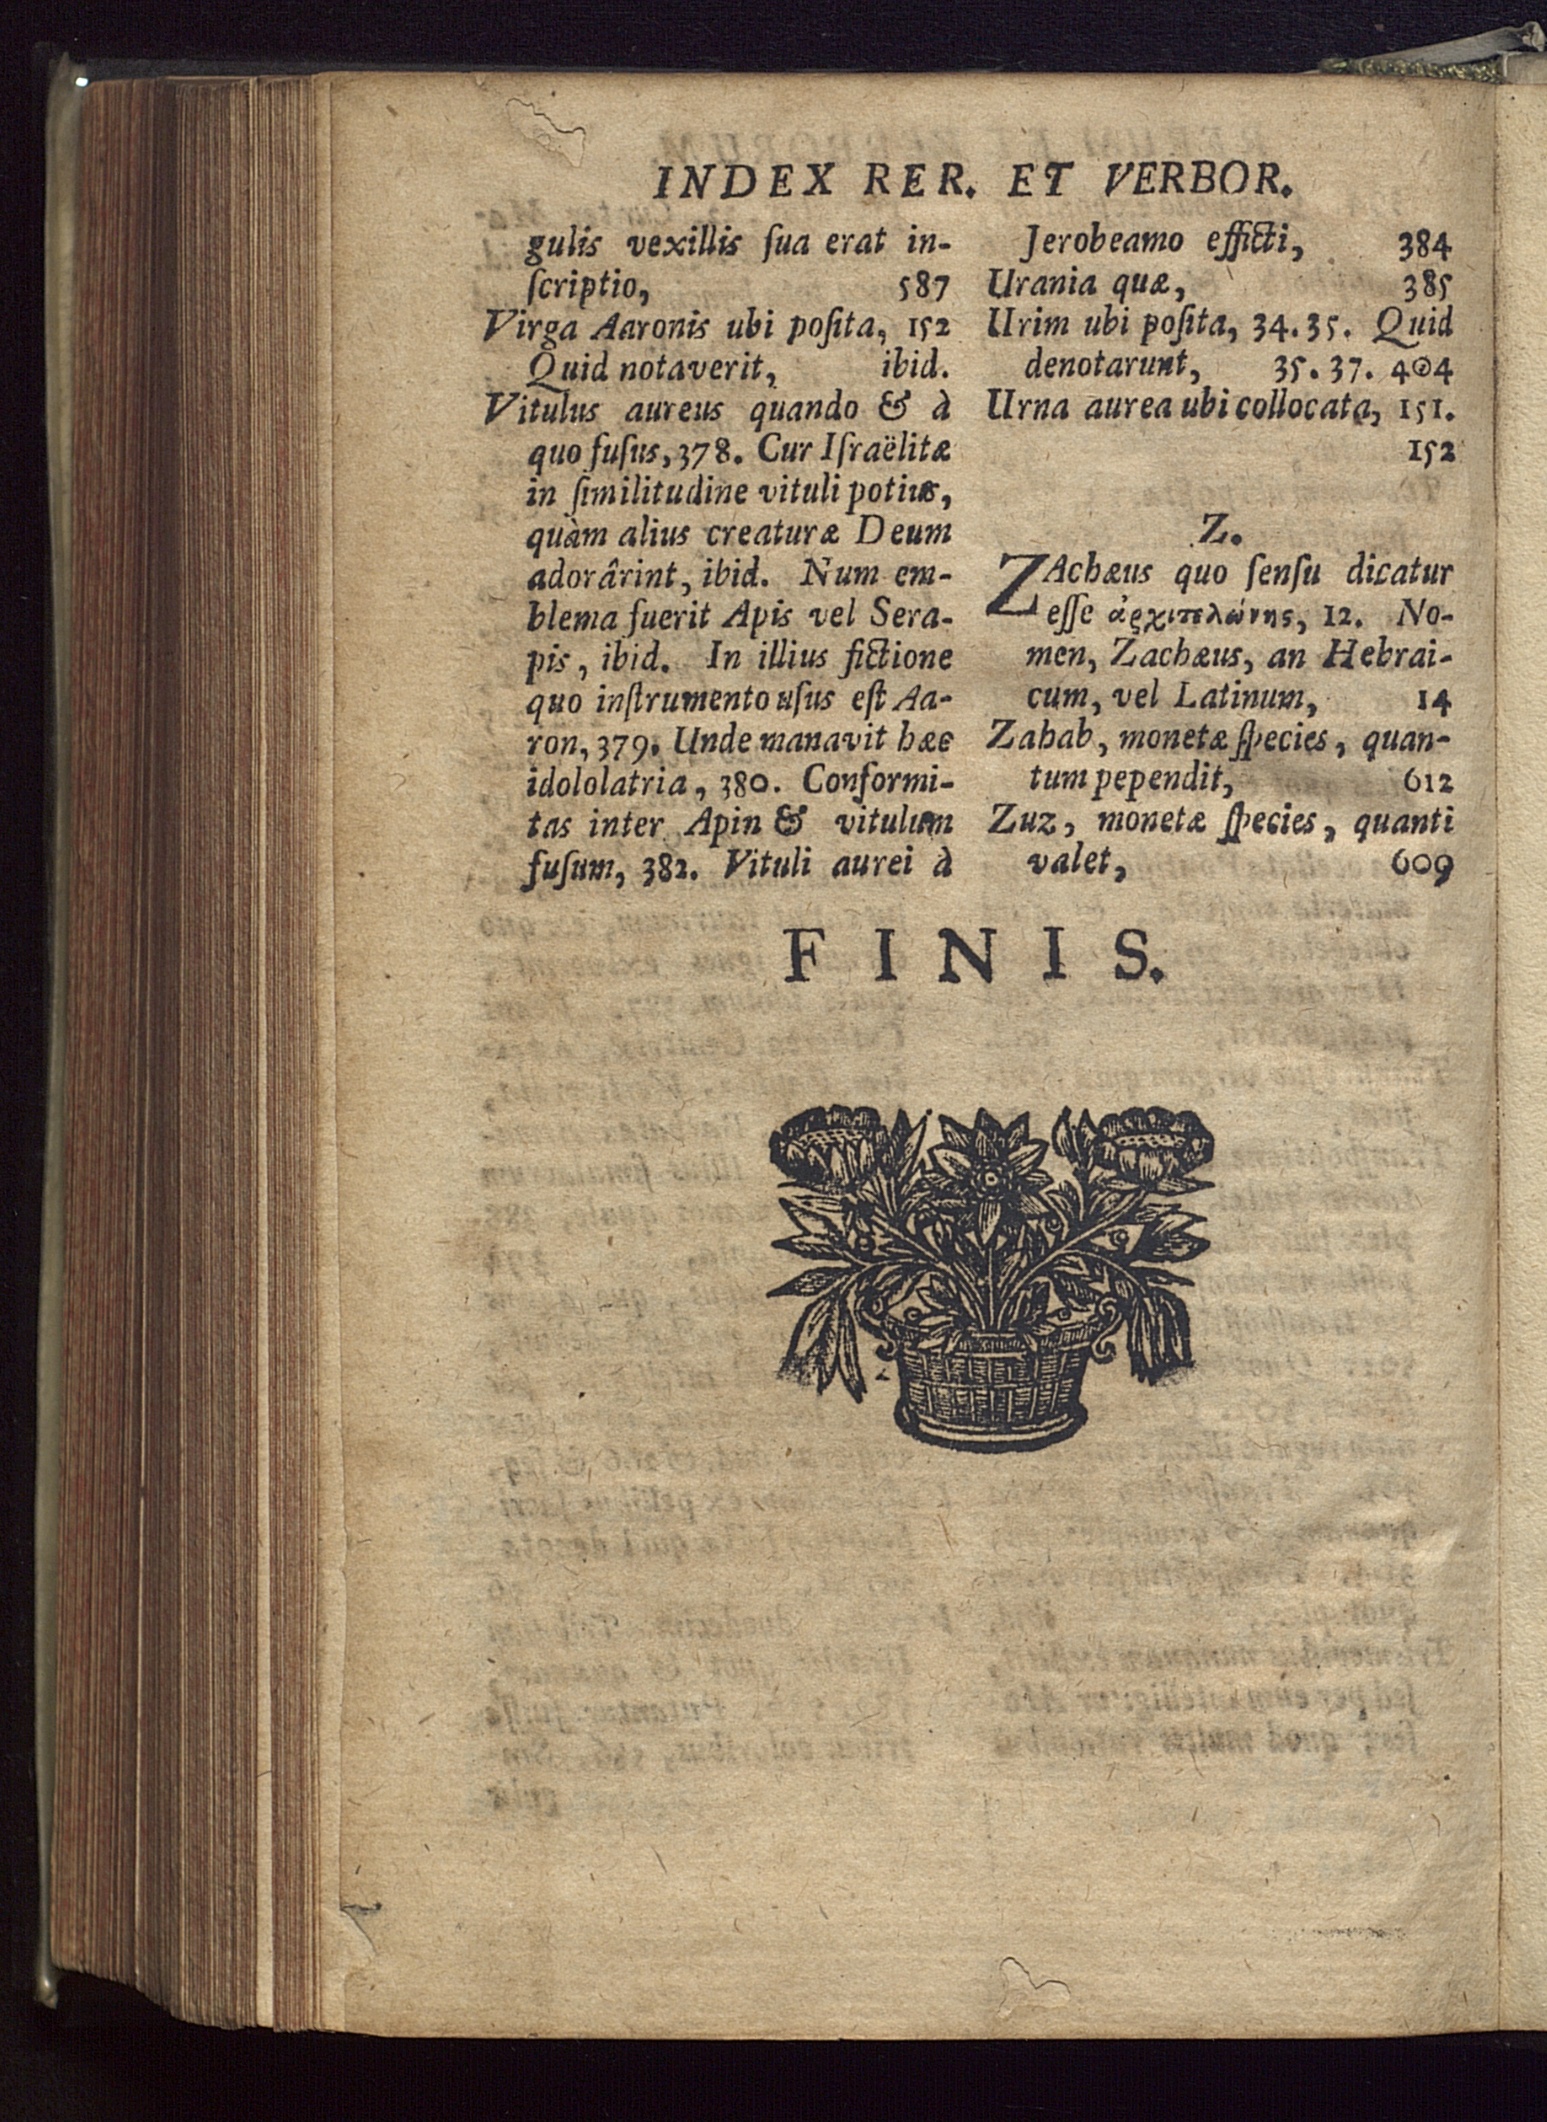 INDEX RER. ET VERBOR.
gulis vexillis ſua erat in-
ſcriptio, 587
Virga Aaronis ubi poſita, 152
Quid notaverit, ibid.
Vitulus aureus quando & à
quo fuſus, 378. Cur Iſraëlitæ
in ſimilitudine vituli potius,
quàm alius creaturæ Deum
adorârint, ibid. Num em-
blema fuerit Apis vel Sera-
pis, ibid. In illius fictione
quo inſtrumento uſus eſt Aa-
ron, 379. Unde manavit hæc
idololatria, 380. Conformi-
tas inter Apin & vitulum
fuſum, 382. Vituli aurei à
Jerobeamo efficti, 384
Urania quæ, 385
Urim ubi poſita, 34. 35. Quid
denotarunt, 35. 37. 404
Urna aurea ubi collocata, 151.
152
Z.
ZAchæus quo ſenſu dicatur
eſſe ἀρχιτελώνης, 12. No-
men, Zachæus, an Hebrai-
cum, vel Latinum, 14
Zahab, monetæ ſpecies, quan-
tum pependit, 612
Zuz, monetæ ſpecies, quanti
valet, 609
FINIS.